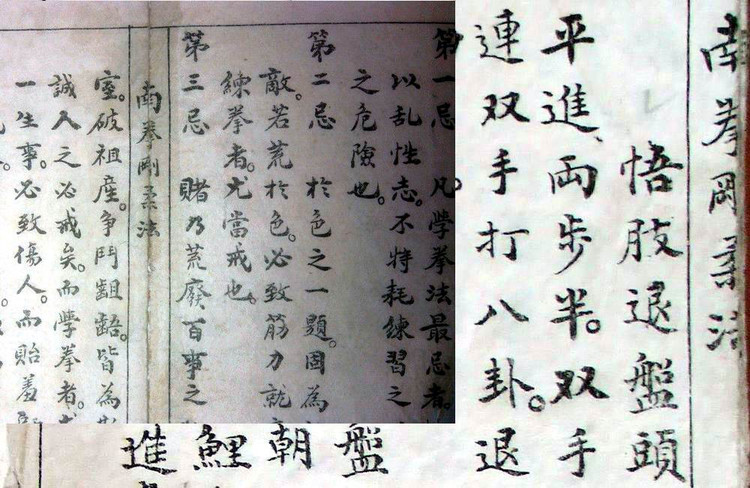 南拳剛柔法
悟肢退盤頭
平進両步半。双手
連双手打八卦。退
第一忌 凡學拳法最忌者。
以乱性志。不特耗練習之
之危險也。
第二忌 於色之一題。因為
敵。若荒於色。必致筋力就
練拳者。尤當戒也。
第三忌 賭乃荒廢百事之
南拳剛柔法
室。破祖產。争鬥齟齬。皆為
誠人之必戒矣。而學拳者。
一生事。必致傷人。而貽羞
盤
朝
鯉
進